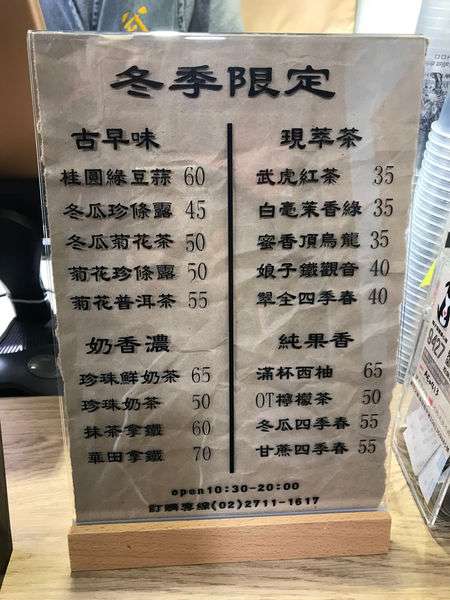 冬季限定
古早味
桂圓綠豆蒜 60
冬瓜珍條露 45
冬瓜菊花茶 50
菊花珍條露 50
菊花普洱茶 55
奶香濃
珍珠鮮奶茶 65
珍珠奶茶 50
抹茶拿鐵 60
華田拿鐵 70
現萃茶
武虎紅茶 35
白毫茉香綠 35
蜜香頂烏龍 35
娘子鐵觀音 40
翠全四季春 40
純果香
滿杯西柚 65
OT檸檬茶 50
冬瓜四季春 55
甘蔗四季春 55
open10:30-20:00
訂購專線(02)2711-1617